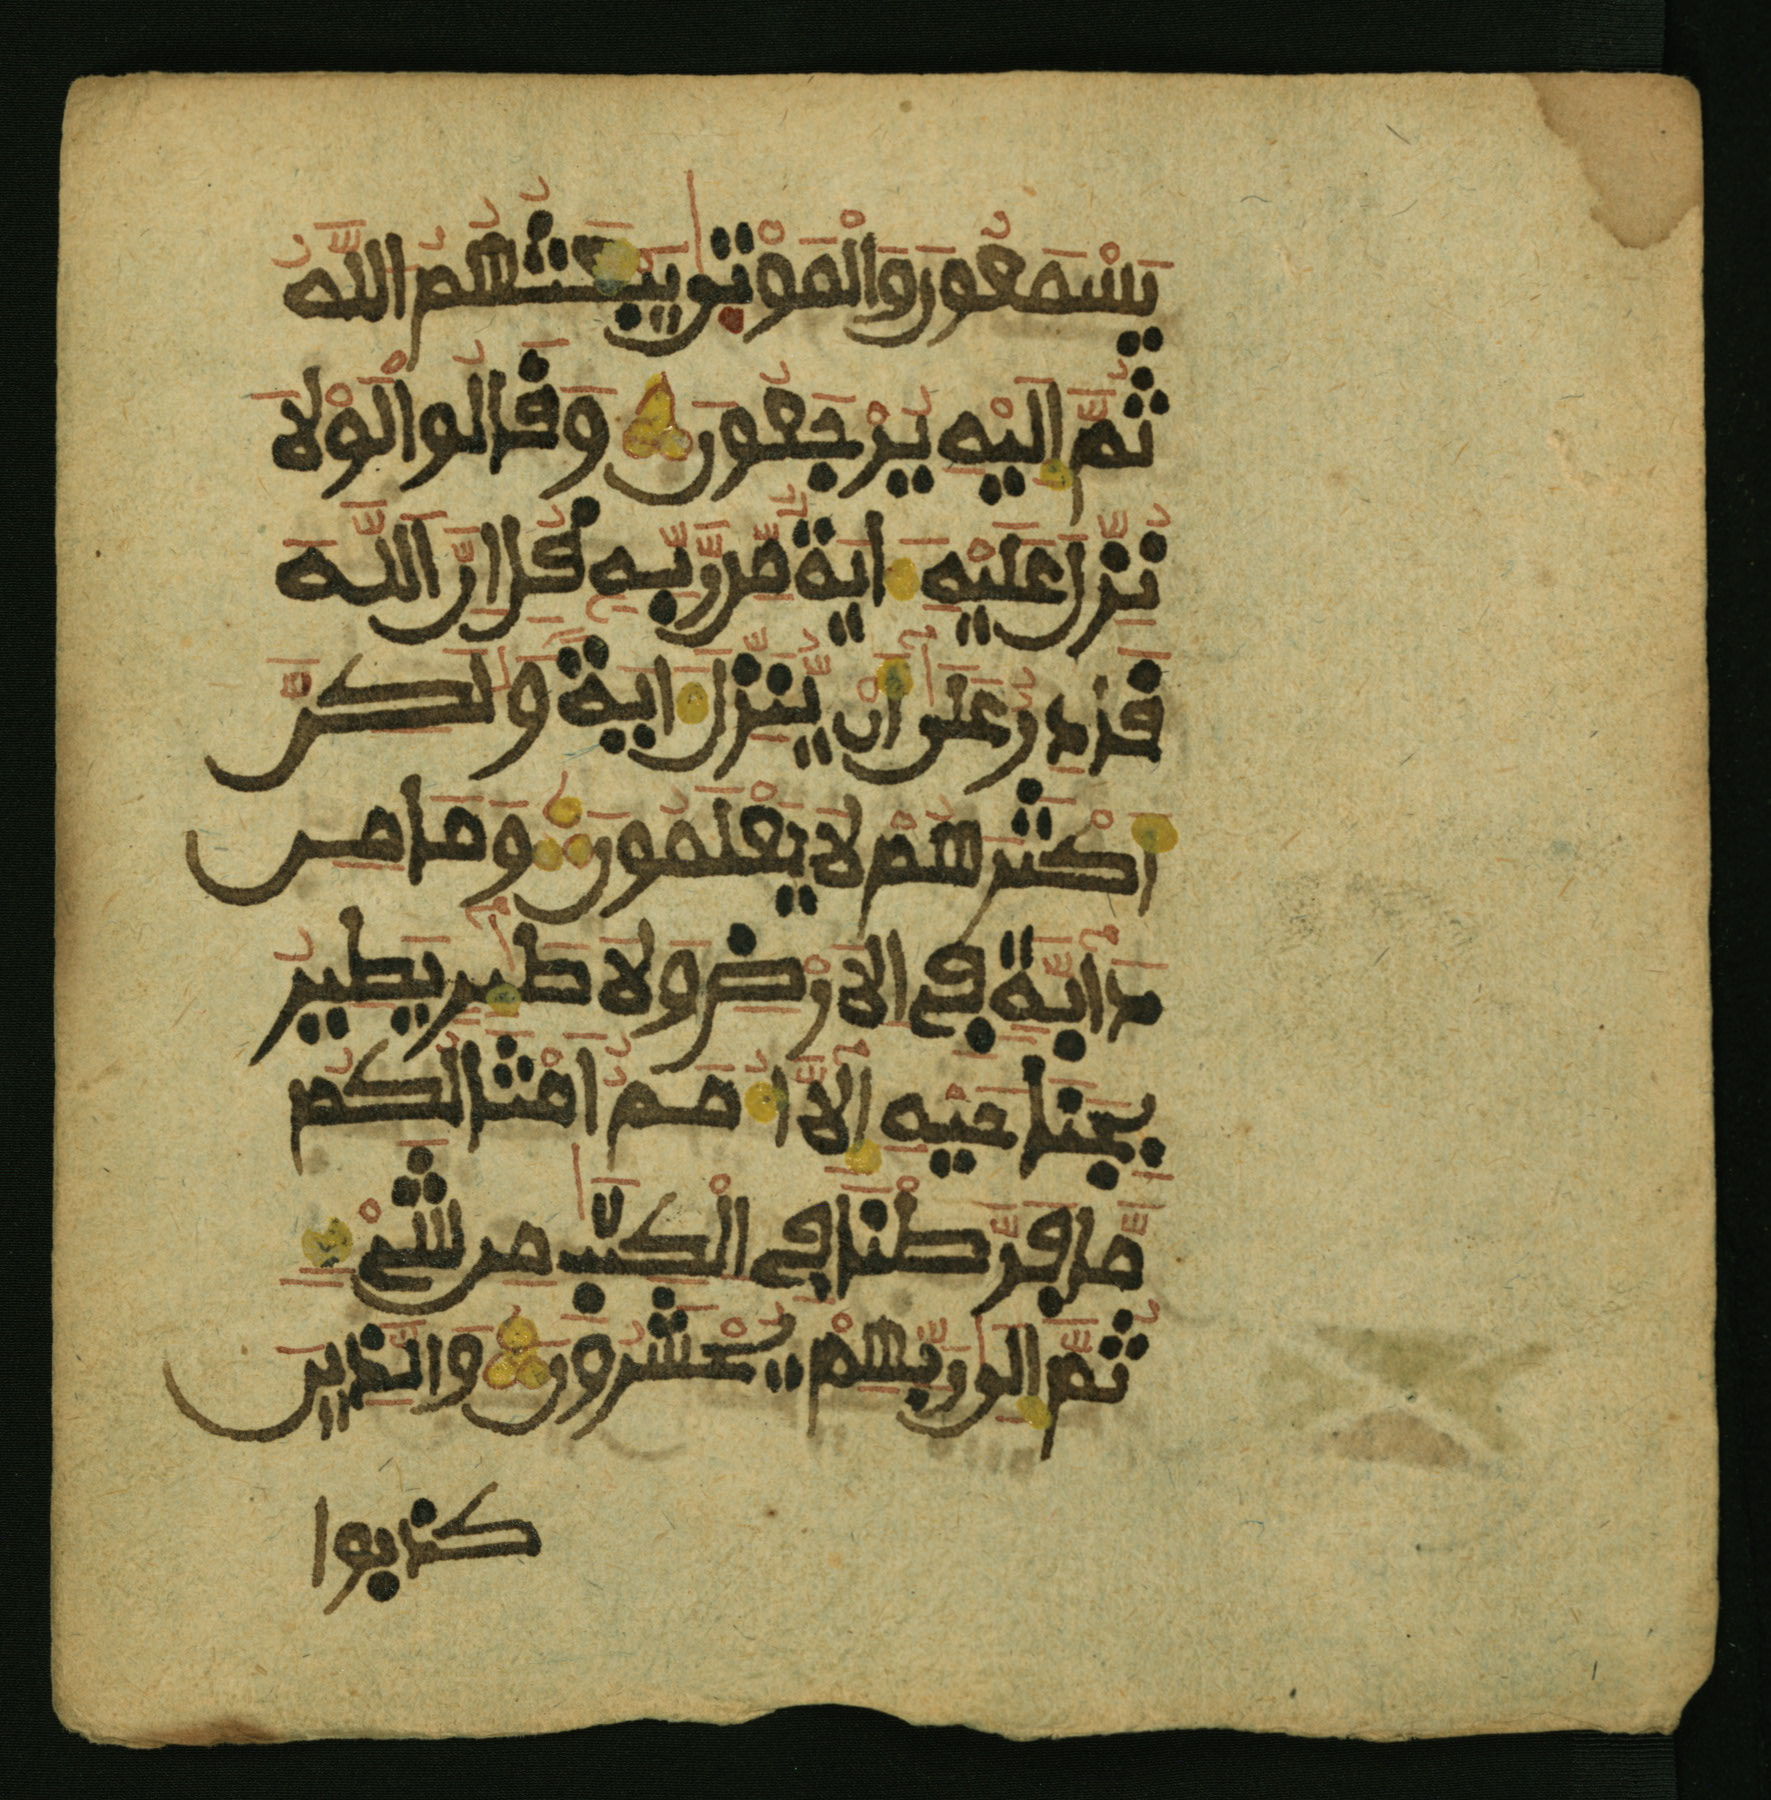 يَسْمَعُونَ وَالْمَوْتَىٰ يَبْعَثُهُمُ اللَّهُ
ثُمَّ إِلَيْهِ يُرْجَعُونَ وَقَالُوا لَوْلَا
نُزِّلَ عَلَيْهِ ءَايَةٌ مِّن رَّبِّهِ قُلْ إِنَّ اللَّهَ
قَادِرٌ عَلَىٰ أَن يُنَزِّلَ ءَايَةً وَلَٰكِنَّ
أَكْثَرَهُمْ لَا يَعْلَمُونَ وَمَا مِن
دَابَّةٍ فِي الْأَرْضِ وَلَا طَٰئِرٍ يَطِيرُ
بِجَنَاحَيْهِ إِلَّا أُمَمٌ أَمْثَالُكُم
مَّا فَرَّطْنَا فِي الْكِتَٰبِ مِن شَيْءٍ
ثُمَّ إِلَىٰ رَبِّهِمْ يُحْشَرُونَ وَالَّذِينَ
كذبوا